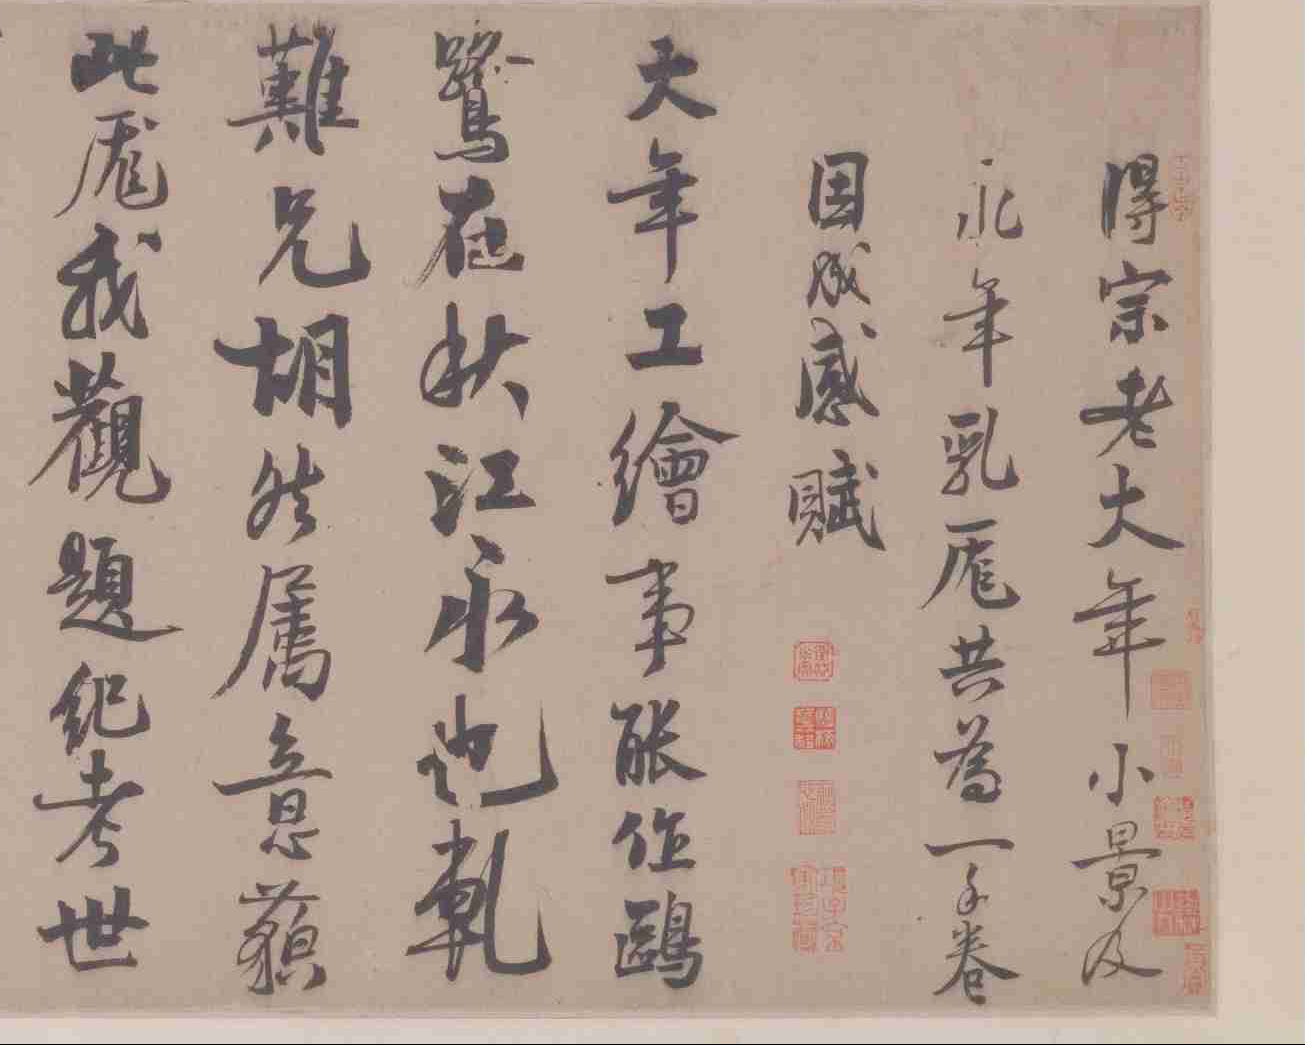 得宗老大年小景及
永年乳虎共為一手卷
因成感賦
大年工繪事能作鷗
鷺在秋江永也孰
難兄胡然屬意
此虎我觀題紀考世